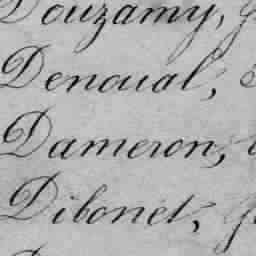 Douzamy,
Denoual,
Dameron,
Dibonet,